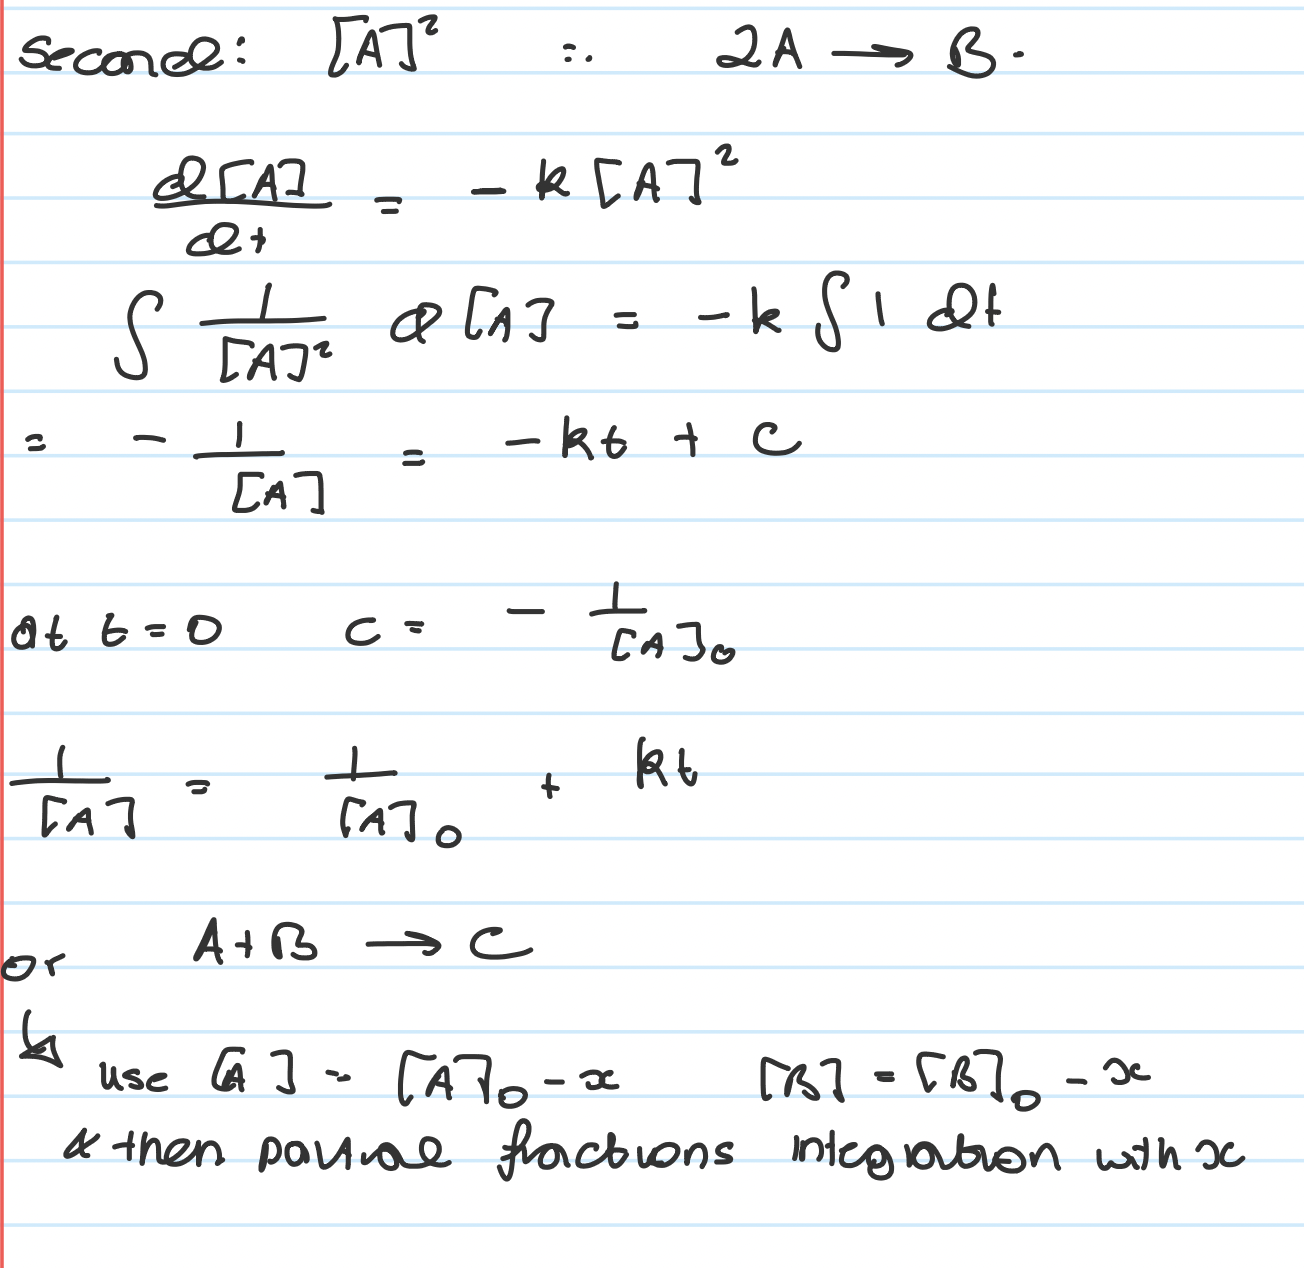 second: [A]² ∴ 2A → B.
d[A]/dt = - k [A]²
∫ 1/[A]² d[A] = -k ∫ 1 dt
= - 1/[A] = -kt + C
at t=0 C = - 1/[A]₀
1/[A] = 1/[A]₀ + kt
or A+B → C
↳ use [A] = [A]₀ - x [B] = [B]₀ - x
& then partial fractions integration with x